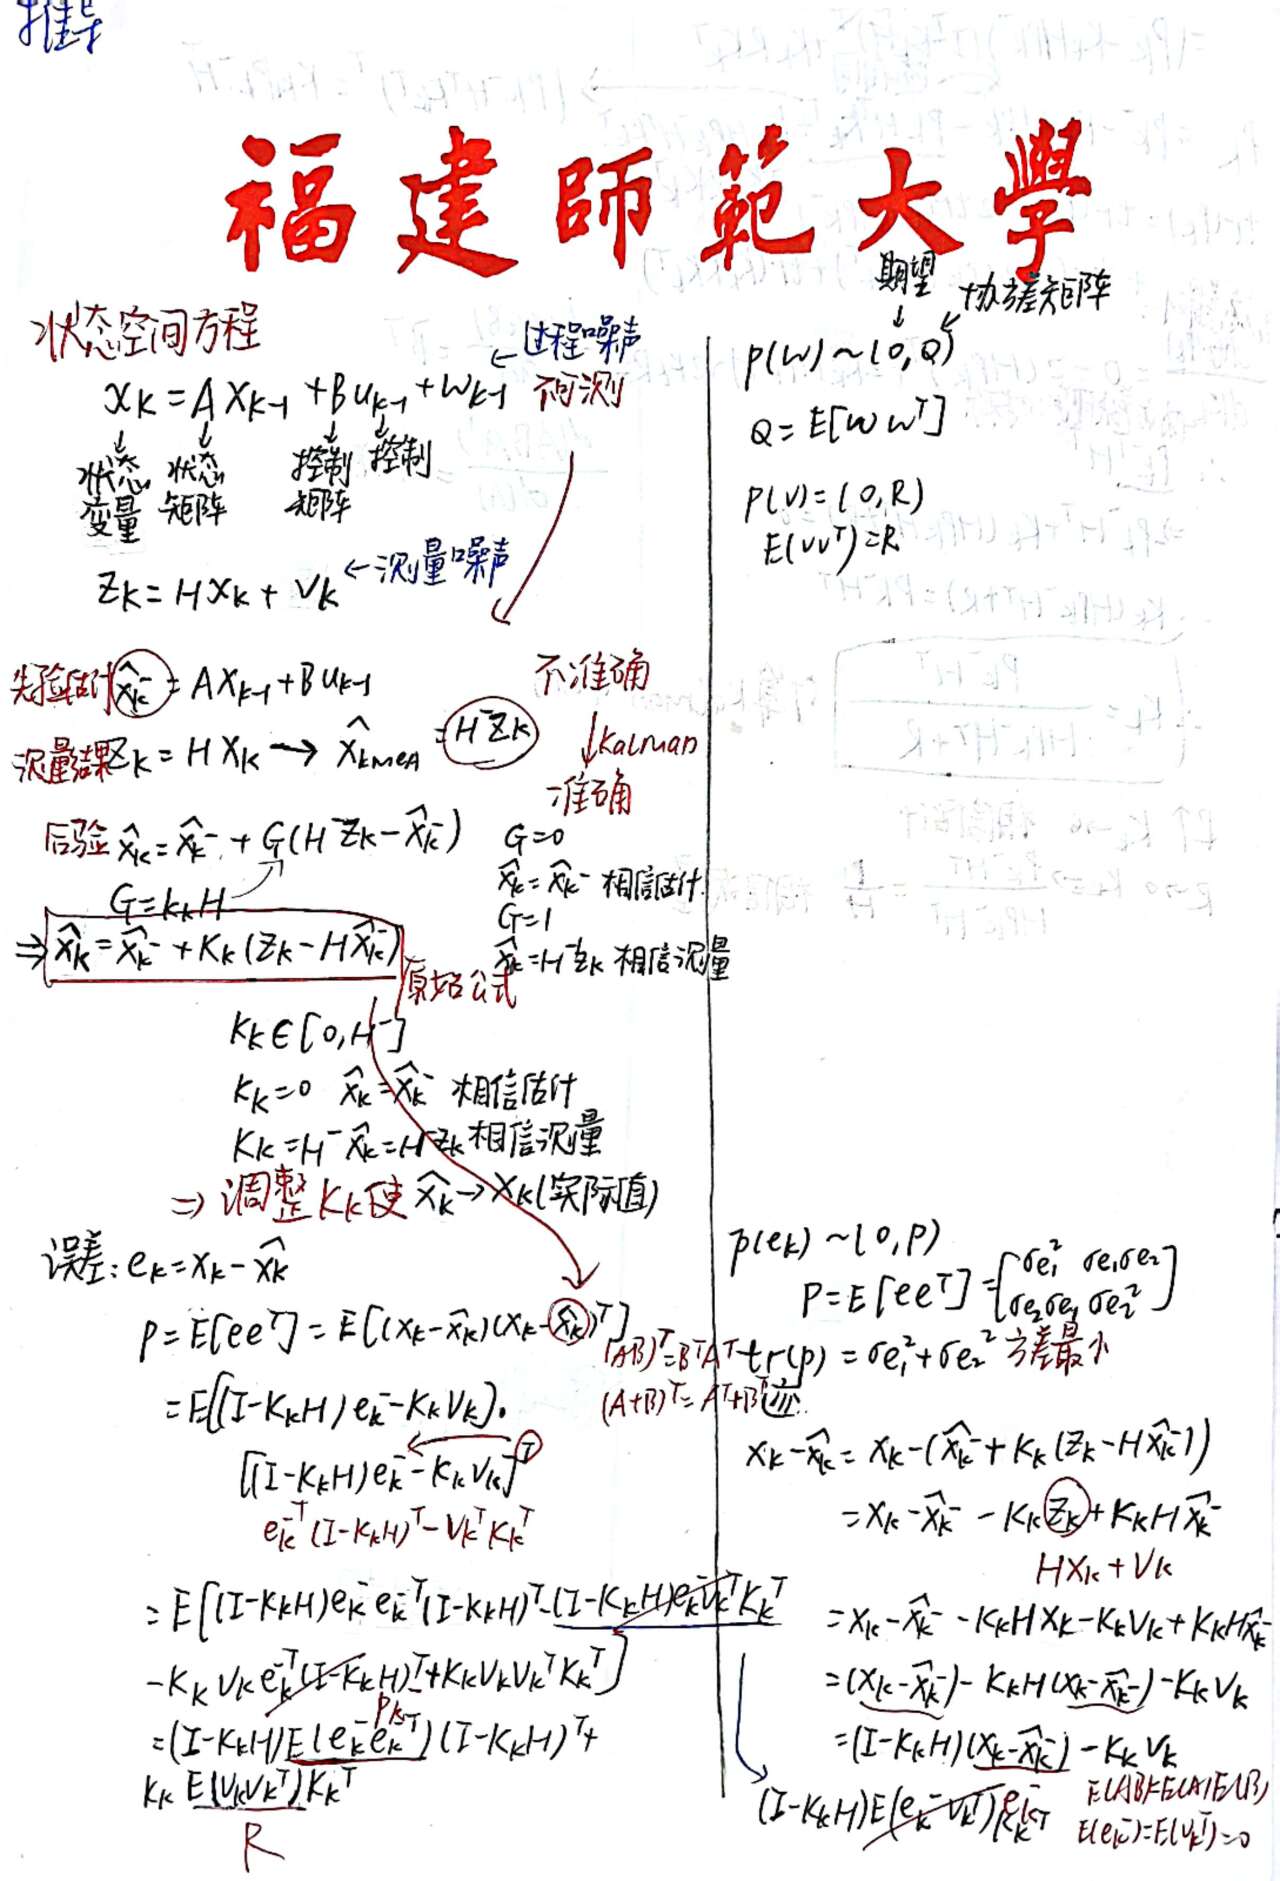 推导
福建師範大學
状态空间方程
x_k = A x_{k-1} + B u_{k-1} + w_{k-1} ← 过程噪声 不可测
状态变量 状态矩阵 控制矩阵 控制
z_k = H x_k + v_k ← 测量噪声
先验估计 x̂_k^- = A x_{k-1} + B u_{k-1} 不准确
测量结果 z_k = H x_k → x̂_{kmea} = H^- z_k ↓ Kalman
准确
后验 x̂_k = x̂_k^- + G(H^- z_k - x̂_k^-)
G = K_k H
⇒ x̂_k = x̂_k^- + K_k (z_k - H x̂_k^-) 原始公式
G=0
x̂_k = x̂_k^- 相信估计
G=1
x̂_k = H^- z_k 相信测量
K_k ∈ [0, H^-]
K_k = 0 x̂_k = x̂_k^- 相信估计
K_k = H^- x̂_k = H^- z_k 相信测量
⇒ 调整 K_k 使 x̂_k → x_k (实际值)
误差: e_k = x_k - x̂_k
P = E[ee^T] = E[(x_k - x̂_k)(x_k - x̂_k)^T]
(AB)^T = B^T A^T
(A+B)^T = A^T + B^T
= E[(I - K_k H) e_k^- - K_k v_k].
[(I - K_k H) e_k^- - K_k v_k]^T
e_k^{-T} (I - K_k H)^T - v_k^T K_k^T
= E[(I - K_k H) e_k^- e_k^{-T} (I - K_k H)^T - (I - K_k H) e_k^- v_k^T K_k^T
- K_k v_k e_k^{-T} (I - K_k H)^T + K_k v_k v_k^T K_k^T]
P_k^-
= (I - K_k H) E(e_k^- e_k^{-T}) (I - K_k H)^T +
K_k E(v_k v_k^T) K_k^T
R
期望 协方差矩阵
p(w) ~ (0, Q)
Q = E[w w^T]
p(v) = (0, R)
E(vv^T) = R
p(e_k) ~ (0, P)
P = E[ee^T] = [σe_1^2 σe_1σe_2
σe_2σe_1 σe_2^2]
tr(p) = σe_1^2 + σe_2^2 方差最小
迹
x_k - x̂_k = x_k - (x̂_k^- + K_k (z_k - H x̂_k^-))
= x_k - x̂_k^- - K_k z_k + K_k H x̂_k^-
H x_k + v_k
= x_k - x̂_k^- - K_k H x_k - K_k v_k + K_k H x̂_k^-
= (x_k - x̂_k^-) - K_k H (x_k - x̂_k^-) - K_k v_k
= (I - K_k H)(x_k - x̂_k^-) - K_k v_k
e_k^-
(I - K_k H) E(e_k^- v_k^T) K_k^T
E(AB) = E(A)E(B)
E(e_k^-) = E(v_k^T) = 0